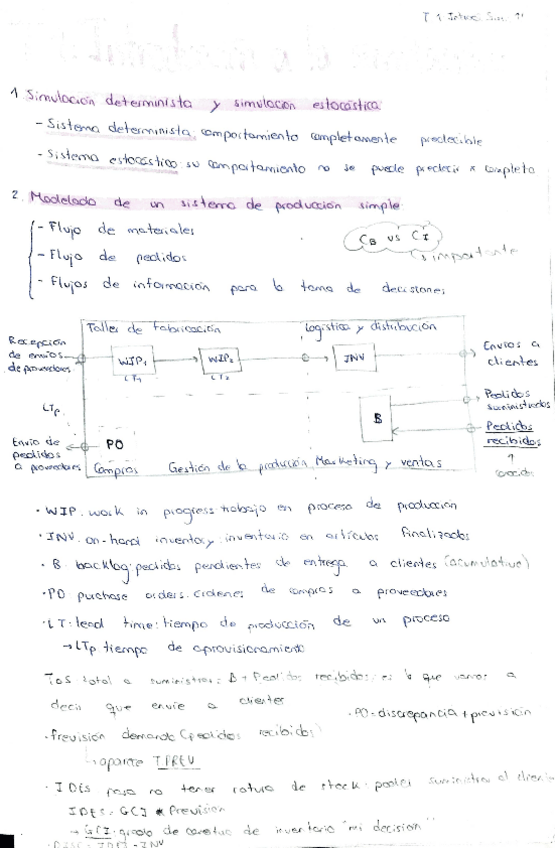 T 1 Introd. Sim.
1 Simulación determinista y simulación estocástica
- Sistema determinista comportamiento completamente predecible
- Sistema estocástico su comportamiento no se puede predecir x completo
2. Modelado de un sistema de producción simple
- Flujo de materiales
- Flujo de pedidos
- Flujos de información para la toma de decisiones
CB vs CI
importante
Taller de fabricación
Logística y distribución
Recepción de envíos de proveedores
WIP1
LT1
WIP2
LT2
INV
Envíos a clientes
LTp
B
Pedidos suministrados
Pedidos recibidos
Envío de pedidos a proveedores
PO
Compras
Gestión de la producción
Marketing y ventas
· WIP. work in progress trabajo en proceso de producción
· INV. on-hand inventory. inventario en artículos finalizados
· B backlog: pedidos pendientes de entrega a clientes (acumulativo)
· PO puchase orders. órdenes de compras a proveedores
· LT: lead time: tiempo de producción de un proceso
→ LTp tiempo de aprovisionamiento
TaS total a suministrar: B + Pedidos recibidos: es lo que vamos a
decir que envíe a clientes
· PO = discrepancia + previsión
· Previsión demanda (pedidos recibidos)
aparte TPREV
· IDES para no tener rotura de stock. poder suministrar al cliente
IDES = GCI * Previsión
→ GCI. grado de inventario "mi decisión"